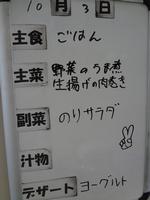 10月3日
主食 ごはん
主菜 野菜のうま煮
生揚げの肉巻き
副菜 のりサラダ
汁物
デザート ヨーグルト